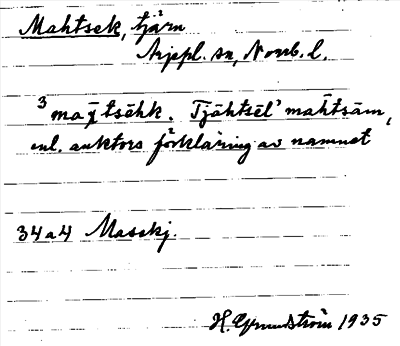 Mahtsek, tjärn
Arjepl. sn, Norrb. l.
3 maχ̄tsēhk. Tjåhtsēl' mahtsām,
enl. auktors förklaring av namnet
34a4 Masskj.
H. Grundström 1935